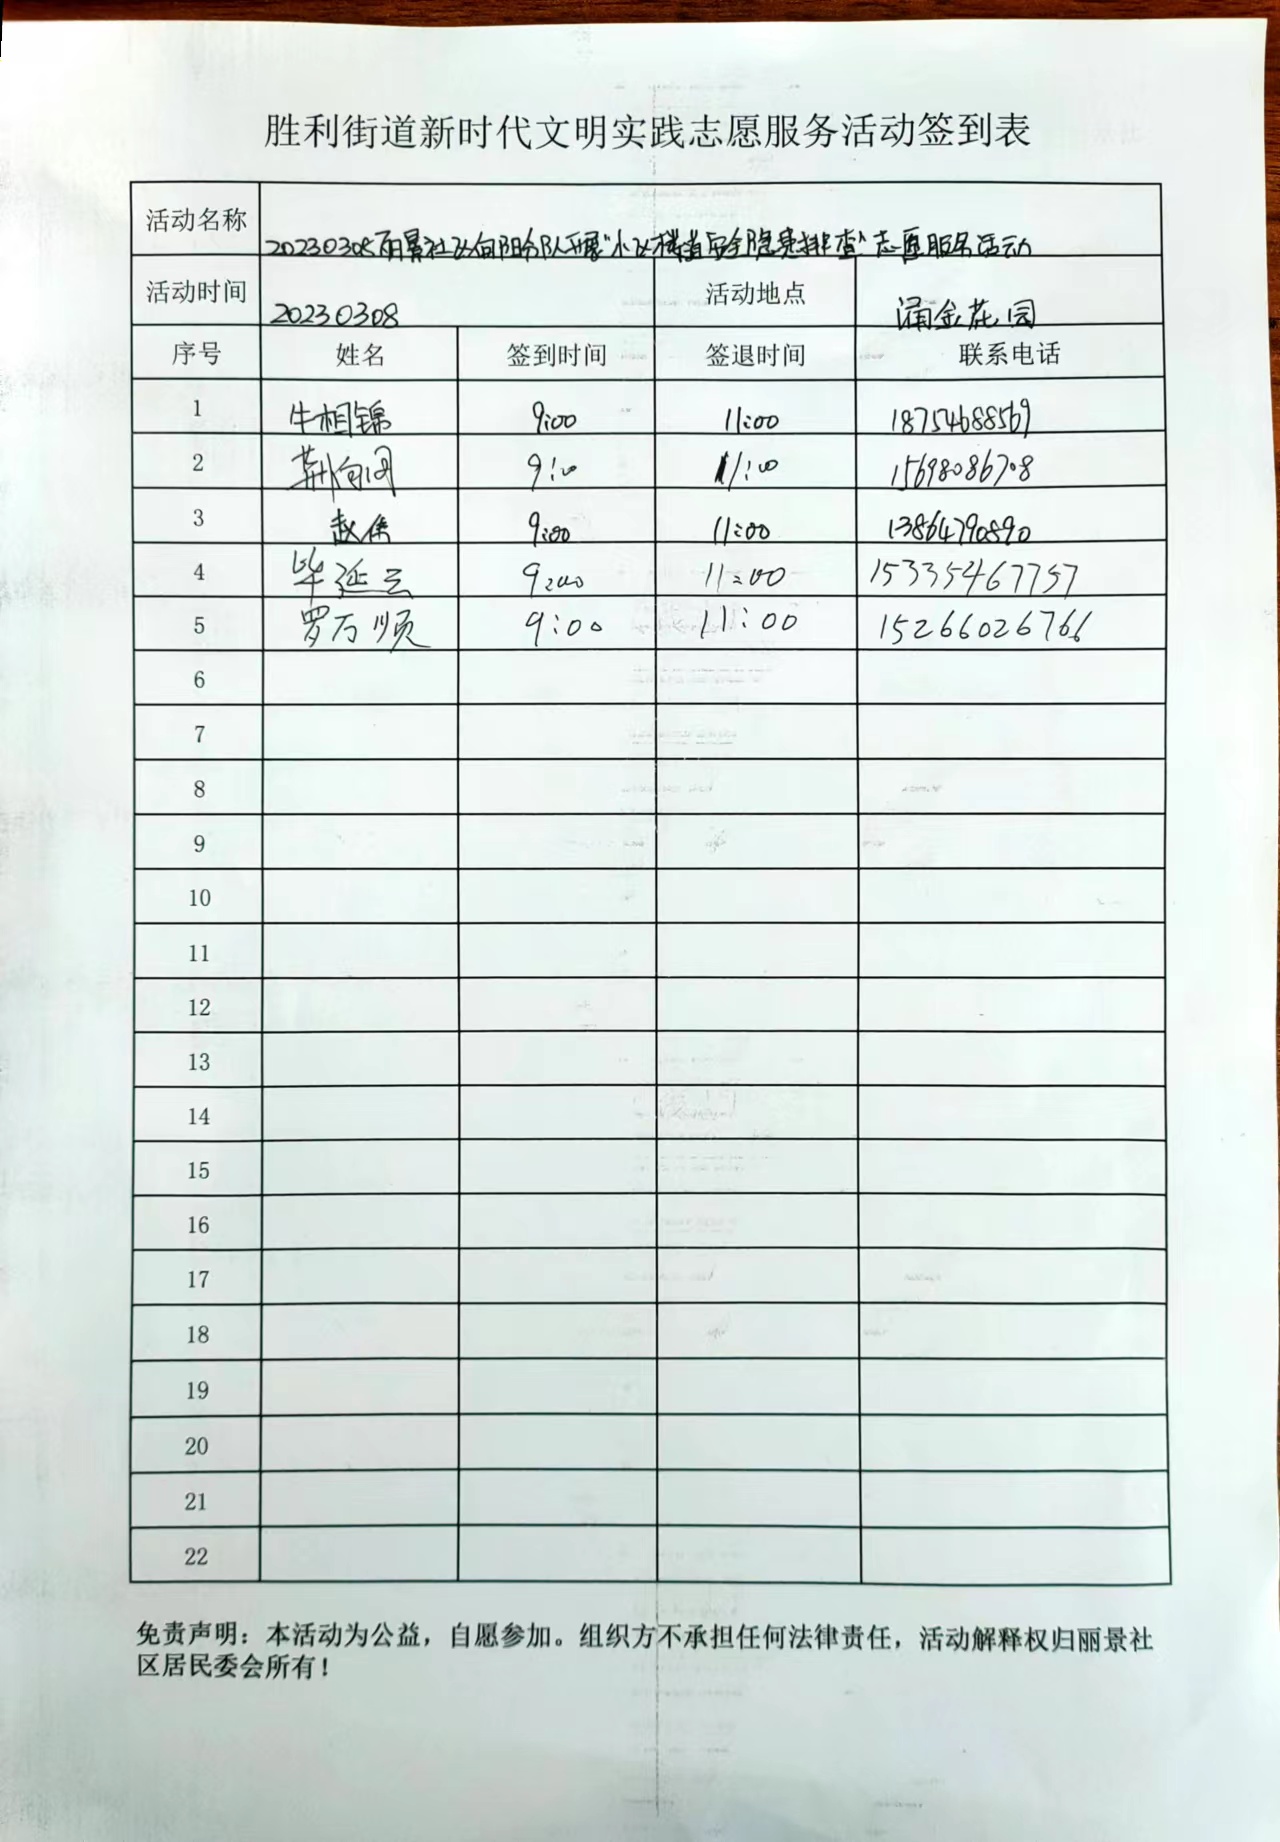 胜利街道新时代文明实践志愿服务活动签到表
活动名称 20230308丽景社区向阳分队开展“小区楼道安全隐患排查”志愿服务活动
活动时间 20230308 活动地点 涌金花园
序号 姓名 签到时间 签退时间 联系电话
1 牛相锦 9:00 11:00 18754688569
2 荆向阳 9:00 11:00 15698086708
3 赵侠 9:00 11:00 13864790890
4 毕延云 9:00 11:00 15335467757
5 罗万顺 9:00 11:00 15266026766
6
7
8
9
10
11
12
13
14
15
16
17
18
19
20
21
22
免责声明：本活动为公益，自愿参加。组织方不承担任何法律责任，活动解释权归丽景社
区居民委会所有！